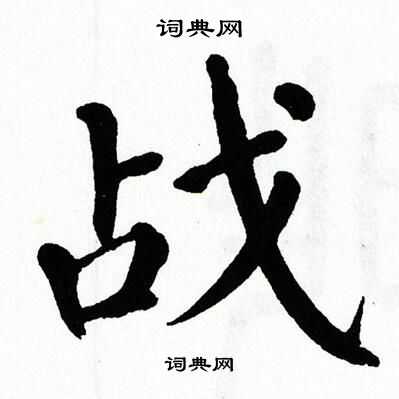 词典网
战
词典网